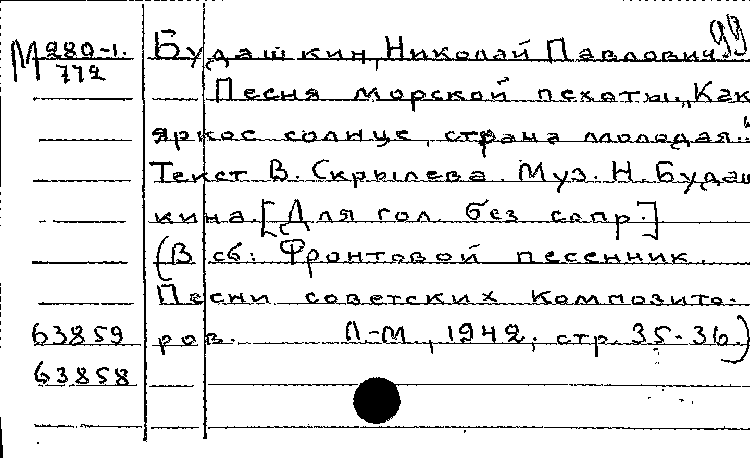 99
М 280-1.
772
Будашкин, Николай Павлович.
Песня морской пехоты. „Как
яркое солнце, страна молодая..."
Текст В. Скрылева. Муз. Н. Будаш
кина. [Для гол. без сопр.]
(В сб: Фронтовой песенник.
Песни советских композито-
ров. Л.-М., 1942, стр. 35-36.)
63859
63858